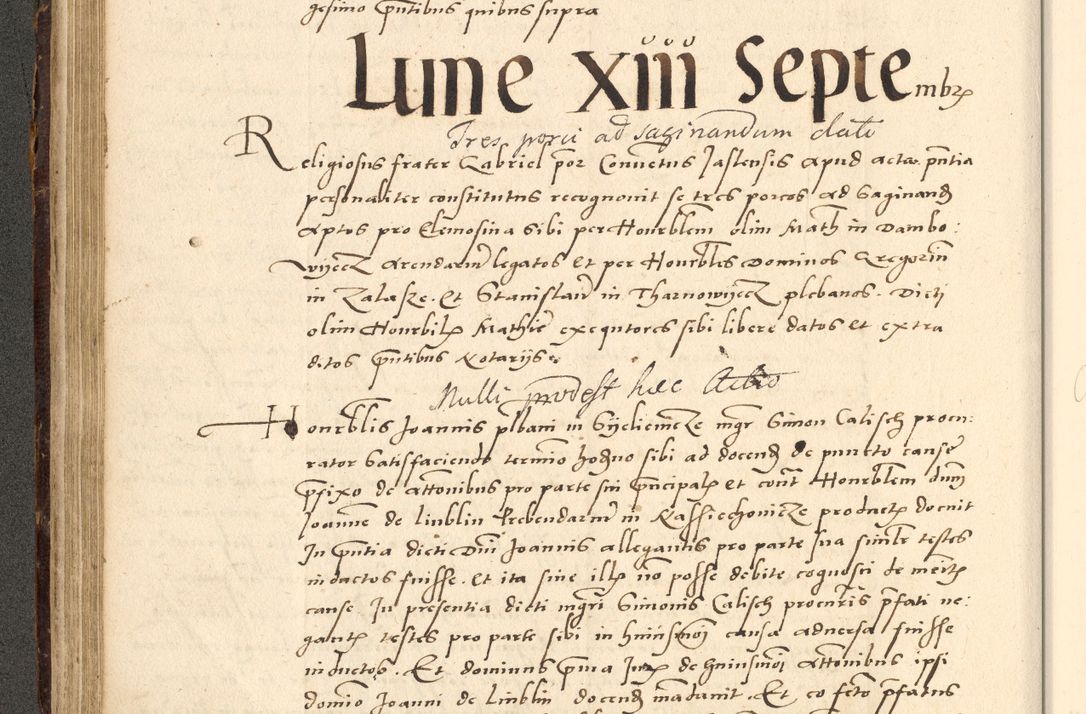 gesimo pntibus quibus supra
Lune xiii Septembrz
Tres porci ad saginandum dati
Religiosus frater Gabriel por Conuetus Jaslensis apud acta pntia
personaliter constitutus recognouit se tres porcos ad saginand
aptos pro Elemosina sibi per Honrblem olim Math in Dambo:
wyecz arendarium legatos et per Honrbles Dominos Gregoriu
in Zalasze et Stanislau in Tharnowyecz plebanos. Dicti
olim Honrbilz Mathie exequtores sibi libere datos et extra
ditos pntibus Notarijs
Nulli prodest hec Actio
Honrblis Joannis plbani in mgr Simon Calisch procu:
rator satisfaciendo termino hodno sibi ad docend de puncto cause
pfixo de attonibus pro parte sui pncipalz et cont Honrblem dnm
Joanne de linblin Prebendariu in productz docuit
In pntia dicti Dni Joannis allegantis pro parte sua similr testes
inductos fuisse. Et ita sine illz no posse debite cognosci de meritz
cause. In presentia dicti mgri Simonis Calisch procuris pfati ne:
gantz testes pro parte sibi in huiusmoi causa aduersa fuisse
inductos. Et dominus de huiusmoi attonibus ipsi
domino Joanni de linblin docend madauit. Et eo fcto pfatus